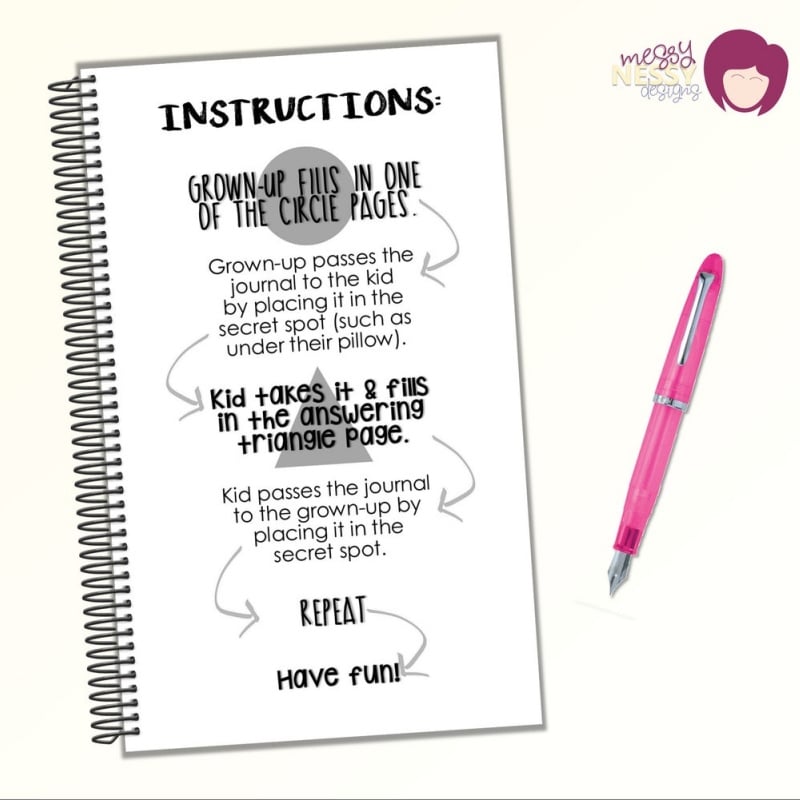 messy
NESSY
designs
INSTRUCTIONS:
GROWN-UP FILLS IN ONE
OF THE CIRCLE PAGES.
Grown-up passes the
journal to the kid
by placing it in the
secret spot (such as
under their pillow).
Kid takes it & fills
in the answering
triangle page.
Kid passes the journal
to the grown-up by
placing it in the
secret spot.
REPEAT
Have fun!